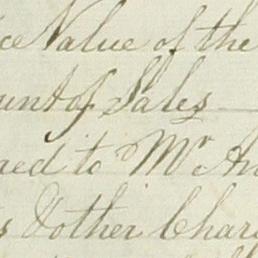 ce Value of the
unt of Sales
ned to Mr An
s & other Char